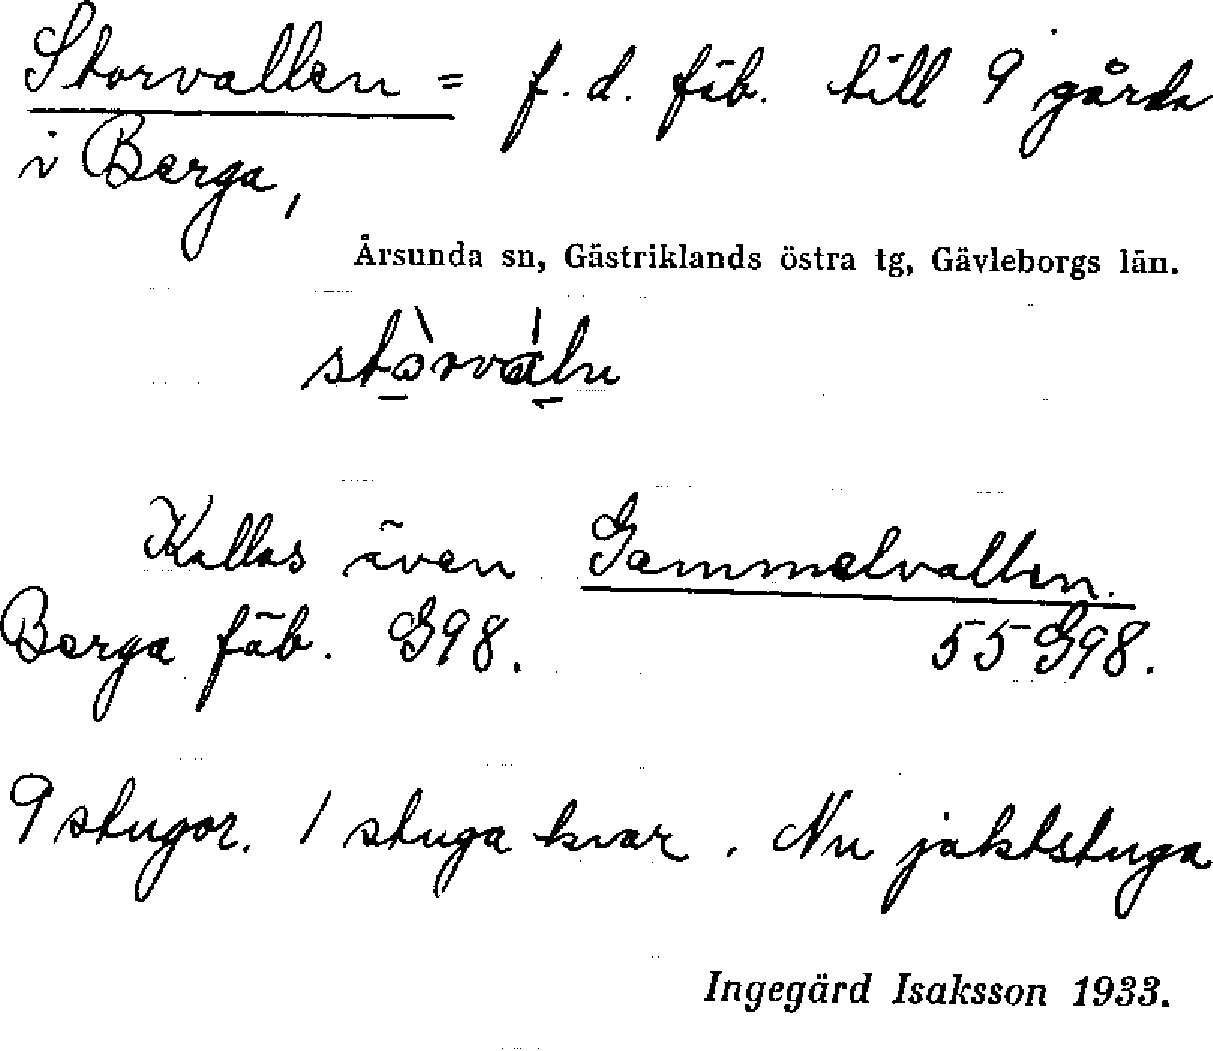 Storvallen = f. d. fäb. till 9 gårdar
i Berga,
Årsunda sn, Gästriklands östra tg, Gävleborgs län.
Kallas även Gammelvallen.
Berga fäb. G98. 55 G98.
9 stugor. 1 stuga kvar. Nu jaktstuga
Ingegärd Isaksson 1933.